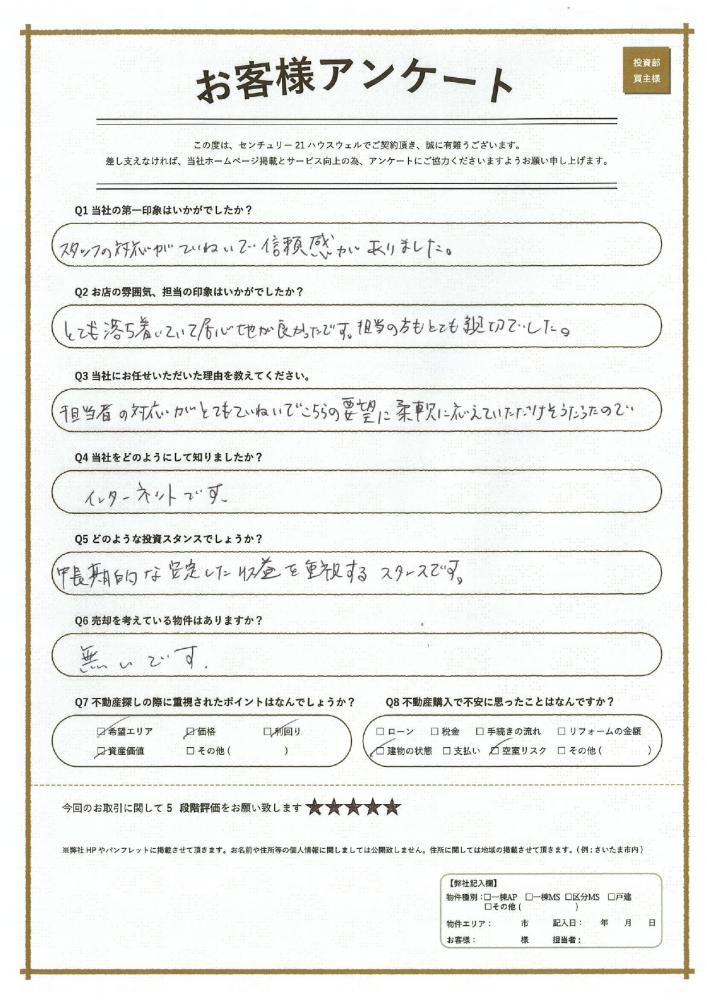 お客様アンケート
投資部
買主様
この度は、センチュリー21ハウスウェルでご契約頂き、誠に有難うございます。
差し支えなければ、当社ホームページ掲載とサービス向上の為、アンケートにご協力くださいますようお願い申し上げます。
Q1 当社の第一印象はいかがでしたか？
スタッフの対応がていねいで信頼感がありました。
Q2 お店の雰囲気、担当の印象はいかがでしたか？
とても落ち着いていて居心地が良かったです。担当の方もとても親切でした。
Q3 当社にお任せいただいた理由を教えてください。
担当者の対応がとてもていねいでこちらの要望に柔軟に応えていただけそうだったので
Q4 当社をどのようにして知りましたか？
インターネットです。
Q5 どのような投資スタンスでしょうか？
中長期的な安定した収益を重視するスタンスです。
Q6 売却を考えている物件はありますか？
無いです.
Q7 不動産探しの際に重視されたポイントはなんでしょうか？
☑希望エリア ☑価格 ☑利回り
☑資産価値 □その他( )
Q8 不動産購入で不安に思ったことはなんですか？
□ローン □税金 □手続きの流れ □リフォームの金額
☑建物の状態 □支払い ☑空室リスク □その他( )
今回のお取引に関して5 段階評価をお願い致します ★★★★★
※弊社HPやパンフレットに掲載させて頂きます。お名前や住所等の個人情報に関しましては公開致しません。住所に関しては地域の掲載させて頂きます。(例:さいたま市内)
【弊社記入欄】
物件種別:□一棟AP □一棟MS □区分MS □戸建
□その他( )
物件エリア: 市 記入日: 年 月 日
お客様: 様 担当者: